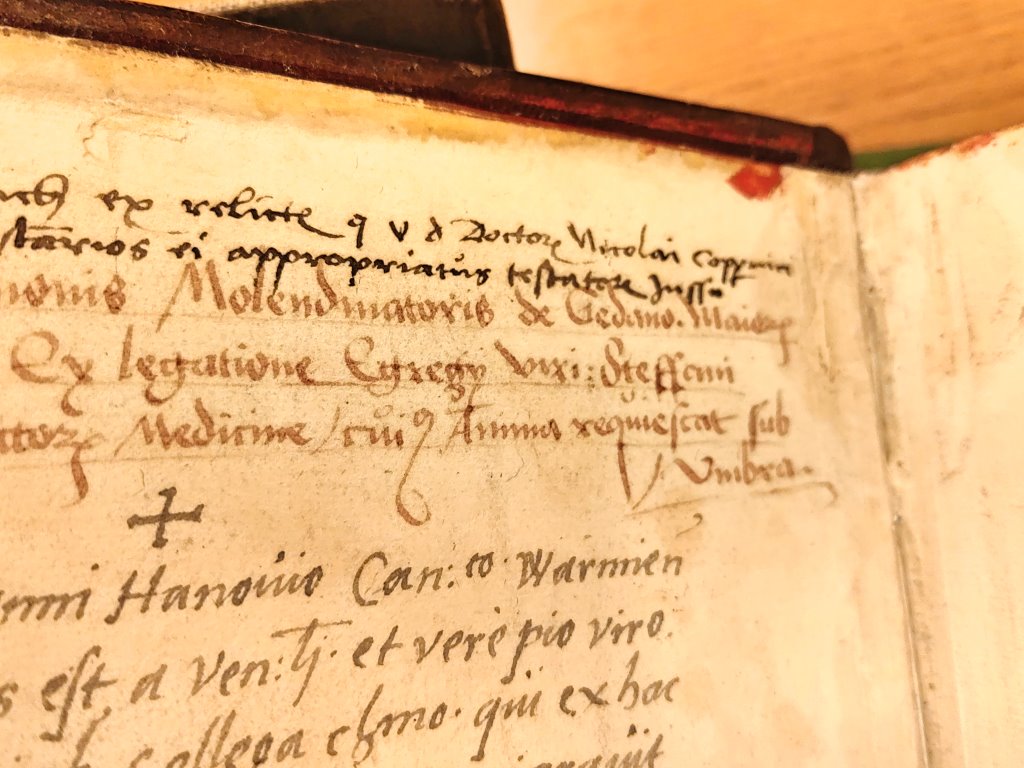 ex relicte q v d Doctore Nicolai Coppernic
starios ei appropriatus testatore Jussu
monis Molendinatoris de Gedano. Maiore
Ex legatione Egregy Viri: Steffani
ctore Medicine / cui9 Anima requiescat sub
Vmbra.
+
Hanouio Can:co. Warmien
s est, a Ven:li. et vere pio viro.
collega chmo. qui ex hac